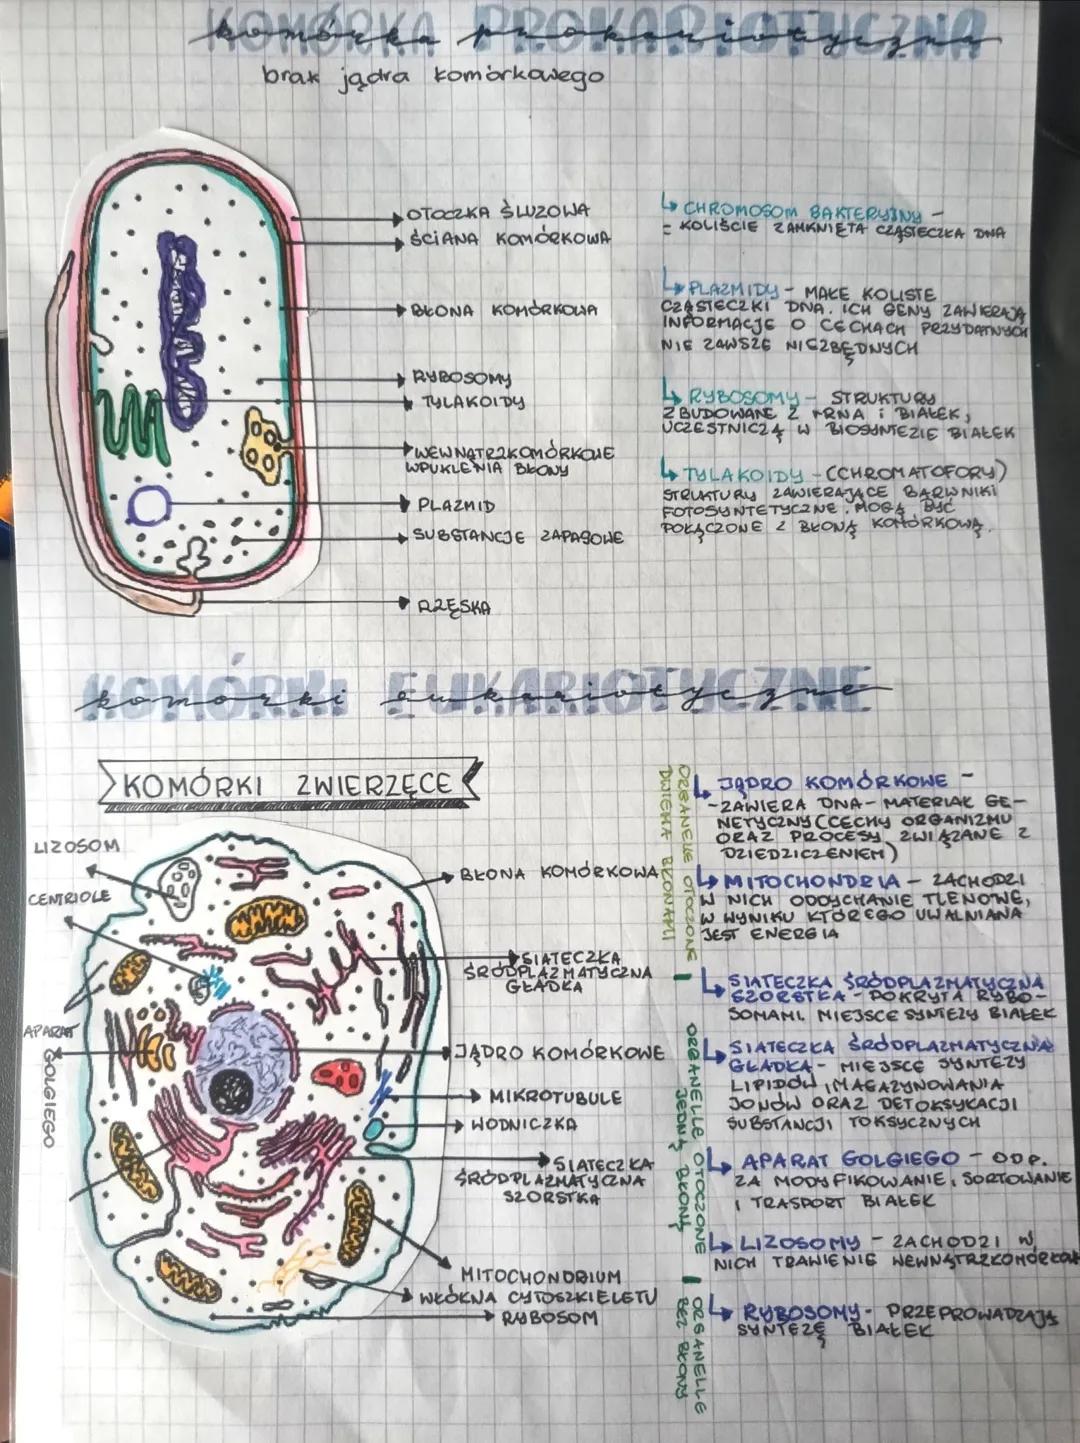 KOMÓRKA PROKARIOTYCZNA
komórka prokariotyczna
brak jądra komórkowego
OTOCZKA ŚLUZOWA
ŚCIANA KOMÓRKOWA
BŁONA KOMÓRKOWA
RYBOSOMY
TYLAKOIDY
WEWNĄTRZKOMÓRKOWE
WPUKLENIA BŁONY
PLAZMID
SUBSTANCJE ZAPASOWE
RZĘSKA
CHROMOSOM BAKTERYJNY -
- KOLIŚCIE ZAMKNIĘTA CZĄSTECZKA DNA
PLAZMIDY - MAŁE KOLISTE
CZĄSTECZKI DNA. ICH GENY ZAWIERAJĄ
INFORMACJE O CECHACH PRZYDATNYCH
NIE ZAWSZE NIEZBĘDNYCH
RYBOSOMY - STRUKTURY
ZBUDOWANE Z rRNA i BIAŁEK,
UCZESTNICZĄ W BIOSYNTEZIE BIAŁEK
TYLAKOIDY - (CCHROMATOFORY)
STRUKTURY ZAWIERAJĄCE BARWNIKI
FOTOSYNTETYCZNE. MOGĄ BYĆ
POŁĄCZONE Z BŁONĄ KOMÓRKOWĄ.
KOMÓRKI EUKARIOTYCZNE
komórki eukariotyczne
KOMÓRKI ZWIERZĘCE
LIZOSOM
CENTRIOLE
APARAT
GOLGIEGO
BŁONA KOMÓRKOWA
SIATECZKA
ŚRÓDPLAZMATYCZNA
GŁADKA
JĄDRO KOMÓRKOWE
MIKROTUBULE
WODNICZKA
SIATECZKA
ŚRÓDPLAZMATYCZNA
SZORSTKA
MITOCHONDRIUM
WŁÓKNA CYTOSZKIELETU
RYBOSOM
ORGANELLE OTOCZONE
DWIEMA BŁONAMI
JĄDRO KOMÓRKOWE -
-ZAWIERA DNA - MATERIAŁ GE-
NETYCZNY (CECHY ORGANIZMU
ORAZ PROCESY ZWIĄZANE Z
DZIEDZICZENIEM)
MITOCHONDRIA - ZACHODZI
W NICH ODDYCHANIE TLENOWE,
W WYNIKU KTÓREGO UWALNIANA
JEST ENERGIA
ORGANELLE OTOCZONE
JEDNĄ BŁONĄ
SIATECZKA ŚRÓDPLAZMATYCZNA
SZORSTKA - POKRYTA RYBO-
SOMAMI. MIEJSCE SYNTEZY BIAŁEK
SIATECZKA ŚRÓDPLAZMATYCZNA
GŁADKA - MIEJSCE SYNTEZY
LIPIDÓW, MAGAZYNOWANIA
JONÓW ORAZ DETOKSYKACJI
SUBSTANCJI TOKSYCZNYCH
APARAT GOLGIEGO - ODP.
ZA MODYFIKOWANIE, SORTOWANIE
I TRASPORT BIAŁEK
LIZOSOMY - ZACHODZI W
NICH TRAWIENIE WEWNĄTRZKOMÓRKOW
ORGANELLE
BEZ BŁONY
RYBOSOMY - PRZEPROWADZAJĄ
SYNTEZĘ BIAŁEK